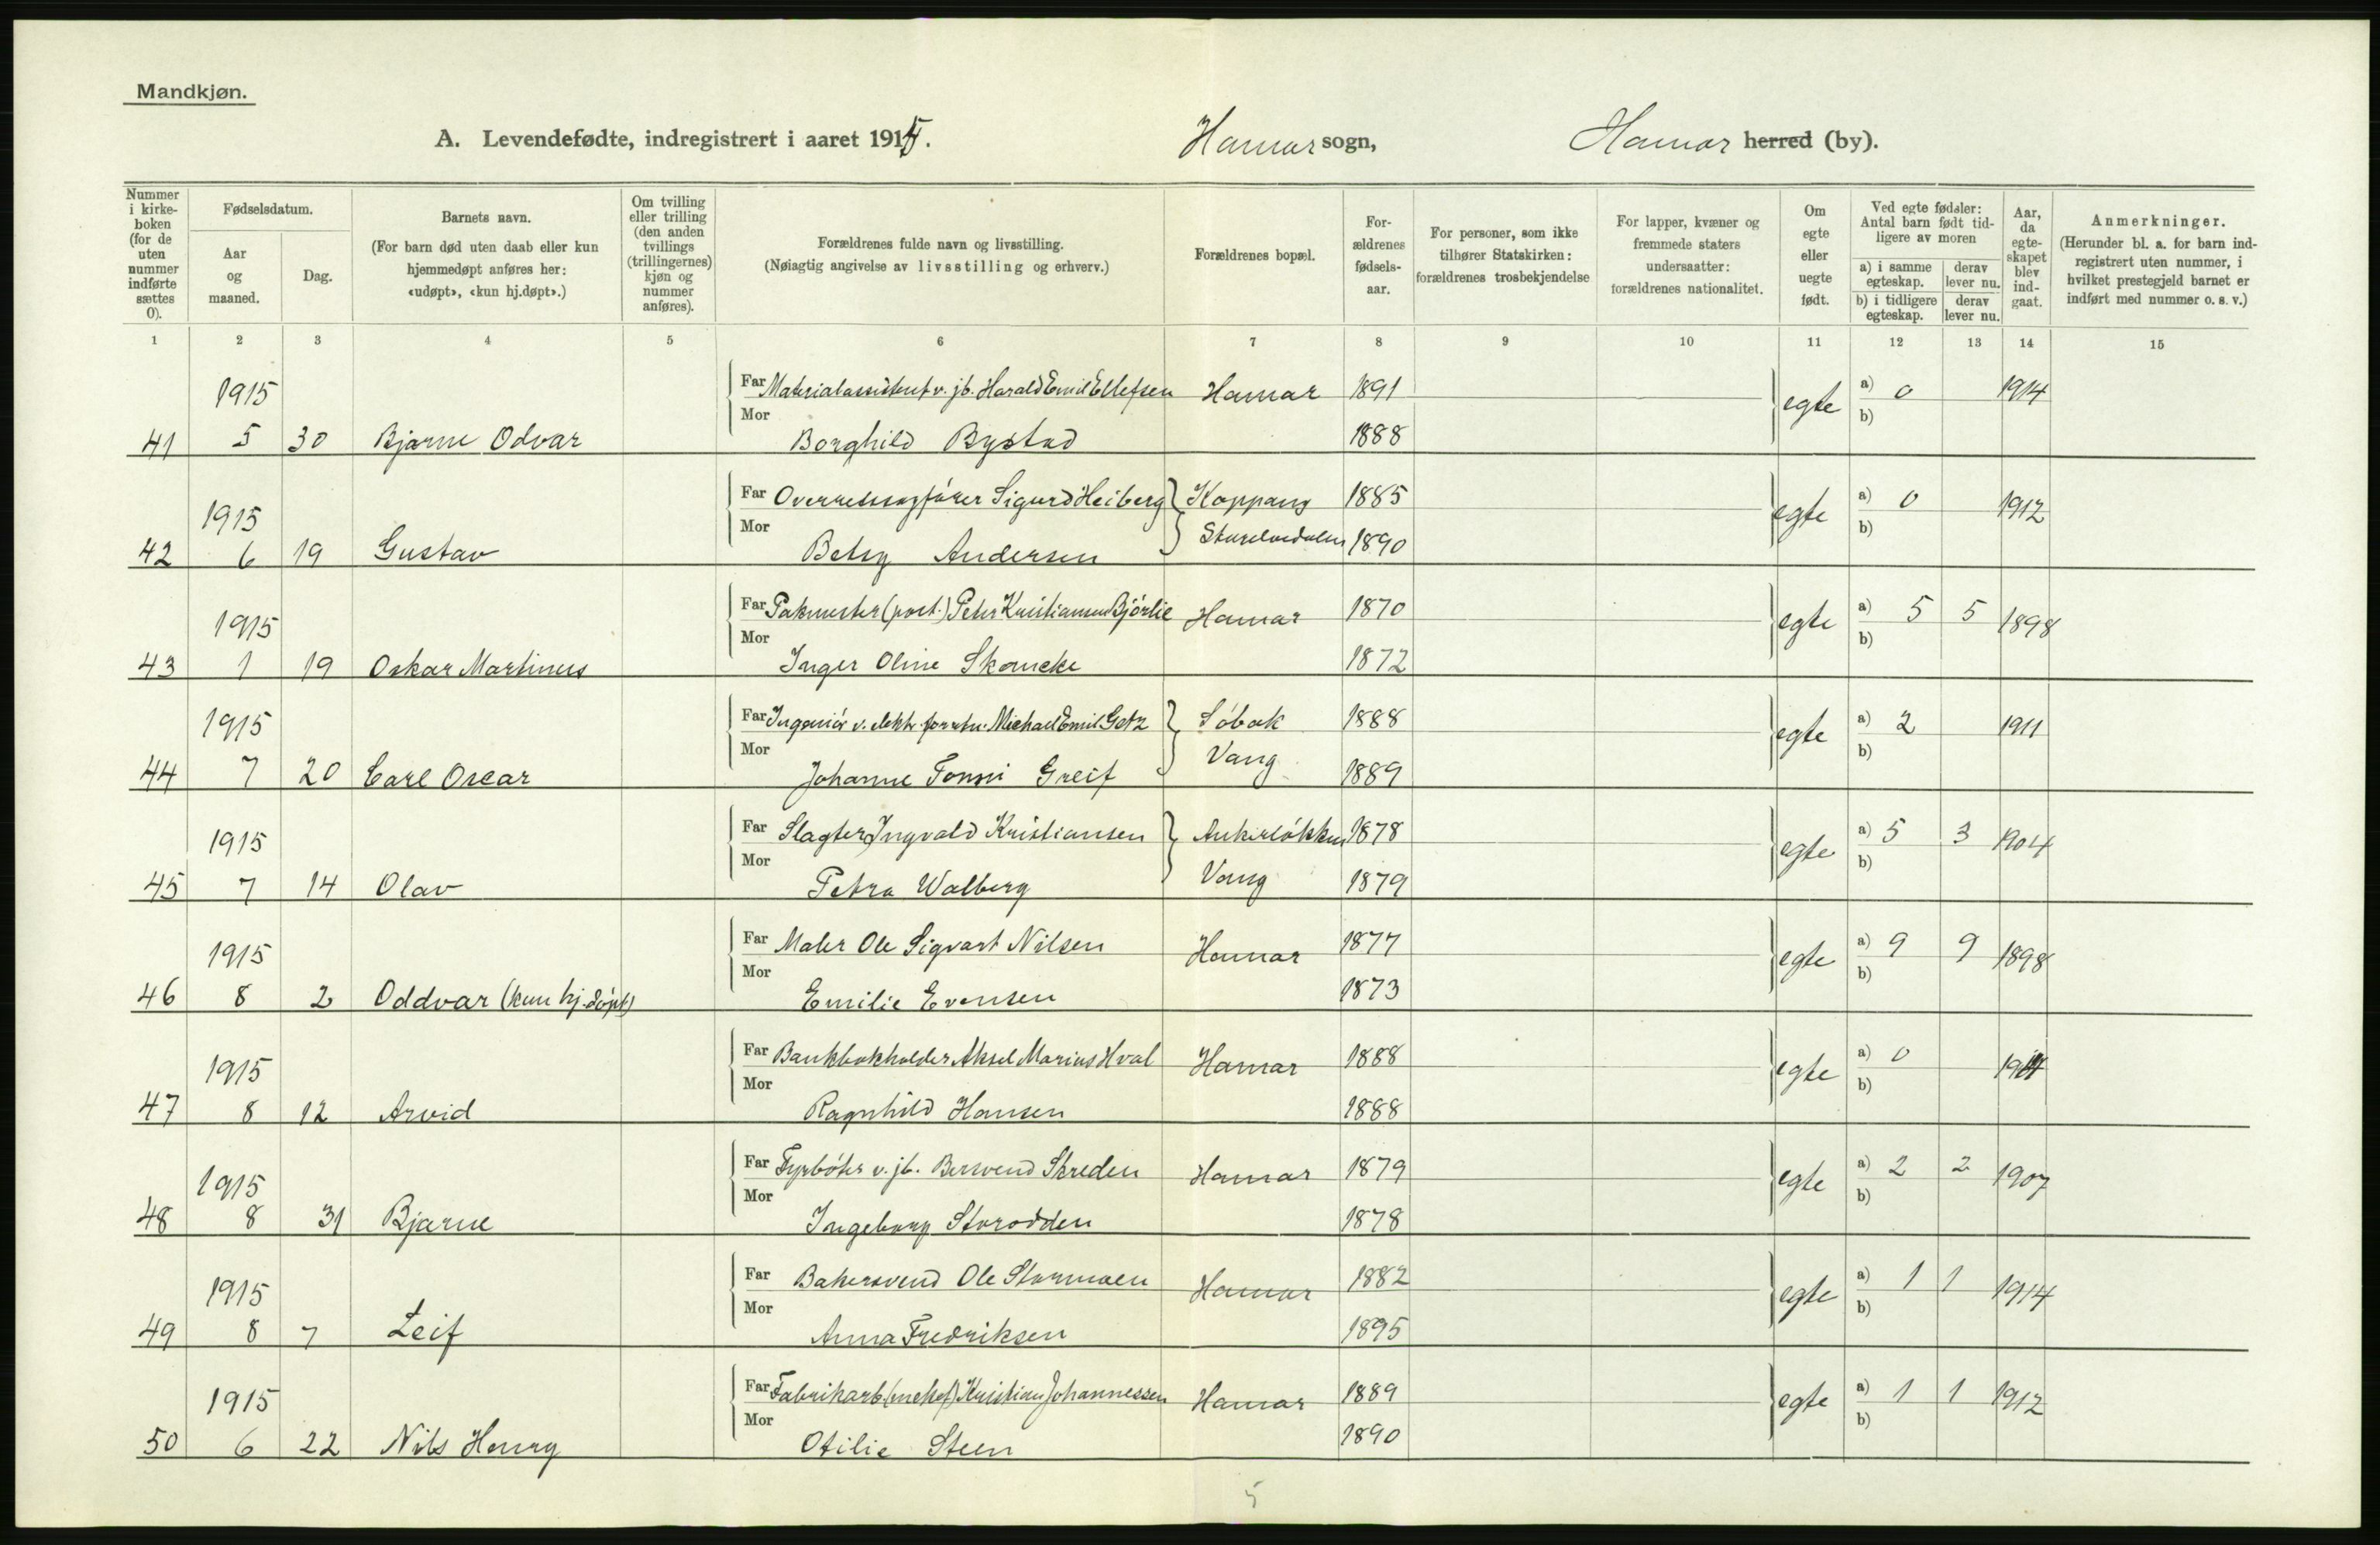 Mandkjøn.
A. Levendefødte, indregistrert i aaret 1915. Hamar sogn, Hamar herred (by).
Nummer i kirkeboken (for de uten nummer indførte sættes 0).
Fødselsdatum.
Aar og maaned.
Dag.
Barnets navn.
(For barn død uten daab eller kun hjemmedøpt anføres her: «udøpt», «kun hj.døpt».)
Om tvilling eller trilling (den anden tvillings (trillingernes) kjøn og nummer anføres).
Forældrenes fulde navn og livsstilling.
(Nøiagtig angivelse av livsstilling og erhverv.)
Forældrenes bopæl.
Forældrenes fødselsaar.
For personer, som ikke tilhører Statskirken: forældrenes trosbekjendelse
For lapper, kvæner og fremmede staters undersaatter: forældrenes nationalitet.
Om egte eller uegte født.
Ved egte fødsler: Antal barn født tidligere av moren
a) i samme egteskap. derav lever nu.
b) i tidligere egteskap. derav lever nu.
Aar, da egteskapet blev indgaat.
Anmerkninger.
(Herunder bl. a. for barn indregistrert uten nummer, i hvilket prestegjeld barnet er indført med nummer o. s. v.)
1 2 3 4 5 6 7 8 9 10 11 12 13 14 15
1915 Far Materialassistent v. jb. Harald Emil Ellefsen Hamar 1891 egte a) 0 1914
41 5 30 Bjarne Odvar Mor Borghild Bystad 1888 b)
1915 Far Overretssagfører Sigurd Heiberg Koppang 1885 egte a) 0 1912
42 6 19 Gustav Mor Betsy Andersen Storelvedalen 1890 b)
1915 Far Pakmester (post.) Peter Kristiansen Bjørlie Hamar 1870 egte a) 5 5 1898
43 1 19 Oskar Martinus Mor Inger Oline Skancke 1872 b)
1915 Far Ingeniør v. elektr. forretn. Michael Emil Getz Søbak 1888 egte a) 2 1911
44 7 20 Carl Oscar Mor Johanne Greif Vang 1889 b)
1915 Far Slagter Ingvald Kristiansen Ankerløkken 1878 egte a) 5 3 1904
45 7 14 Olav Mor Petra Walberg Vang 1879 b)
1915 Far Maler Ole Sigvart Nilsen Hamar 1877 egte a) 9 9 1898
46 8 2 Oddvar (kun hj.døpt) Mor Emilie Evensen 1873 b)
1915 Far Bankbokholder Aksel Marius Hval Hamar 1888 egte a) 0 1914
47 8 12 Arvid Mor Ragnhild Hansen 1888 b)
1915 Far Fyrbøter v. jb. Bersvend Skreden Hamar 1879 egte a) 2 2 1907
48 8 31 Bjarne Mor Ingeborg Storodden 1878 b)
1915 Far Bakersvend Ole Stormoen Hamar 1882 egte a) 1 1 1914
49 8 7 Leif Mor Anna Fredriksen 1895 b)
1915 Far Fabrikarb. Kristian Johannessen Hamar 1889 egte a) 1 1 1912
50 6 22 Nils Henry Mor Otilie Steen 1890 b)
5